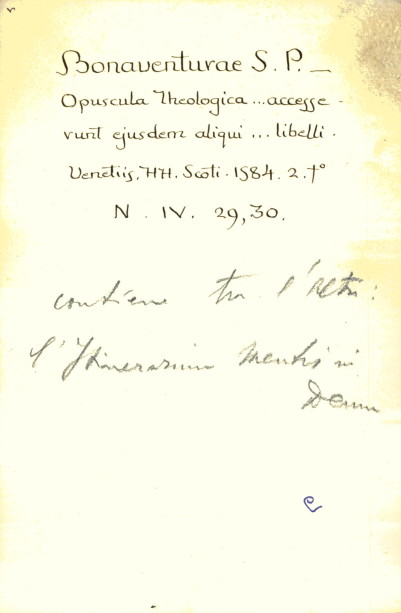 Bonaventurae S. P. —
Opuscula Theologica ... accesse-
runt ejusdem aliqui ... libelli.
Venetiis, HH. Scoti. 1584. 2. f°
N. IV. 29,30.
contiene tra l'altro:
l'Itinerarium mentis in
Deum